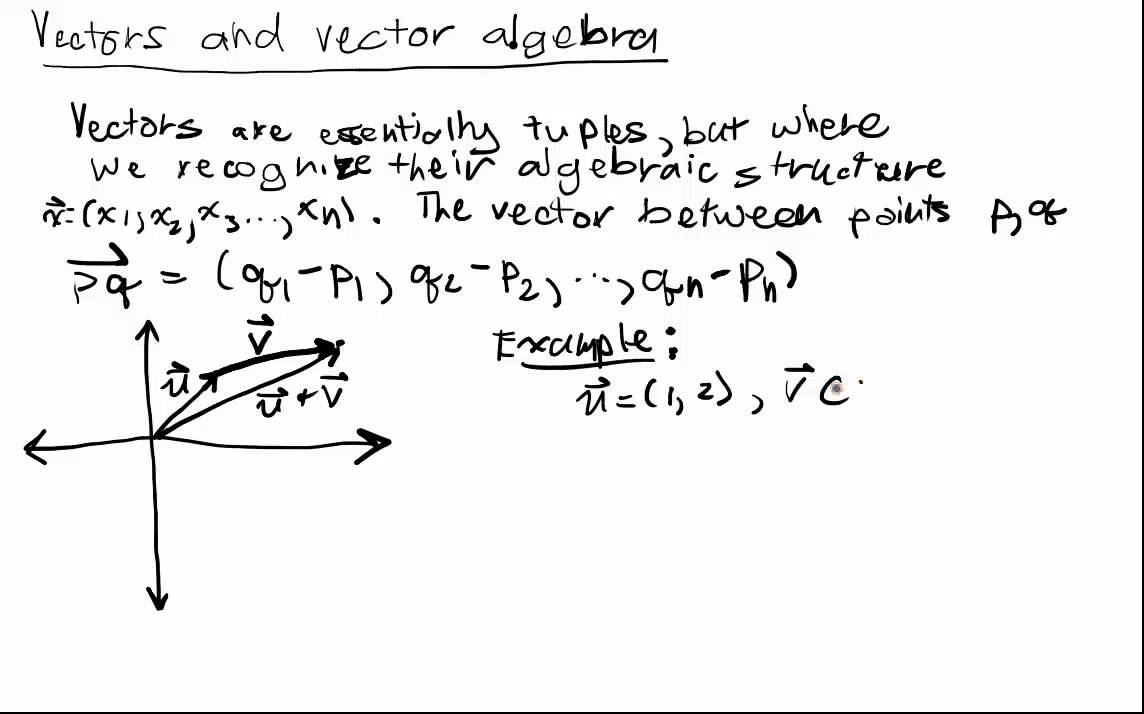 Vectors and vector algebra
Vectors are essentially tuples, but where
we recognize their algebraic structure
x⃗=(x₁,x₂,x₃...,xₙ). The vector between points p,q
p⃗q⃗ = (q₁-p₁, q₂-p₂, ..., qₙ-pₙ)
v⃗
Example:
u⃗
u⃗+v⃗
u⃗=(1,2), v⃗